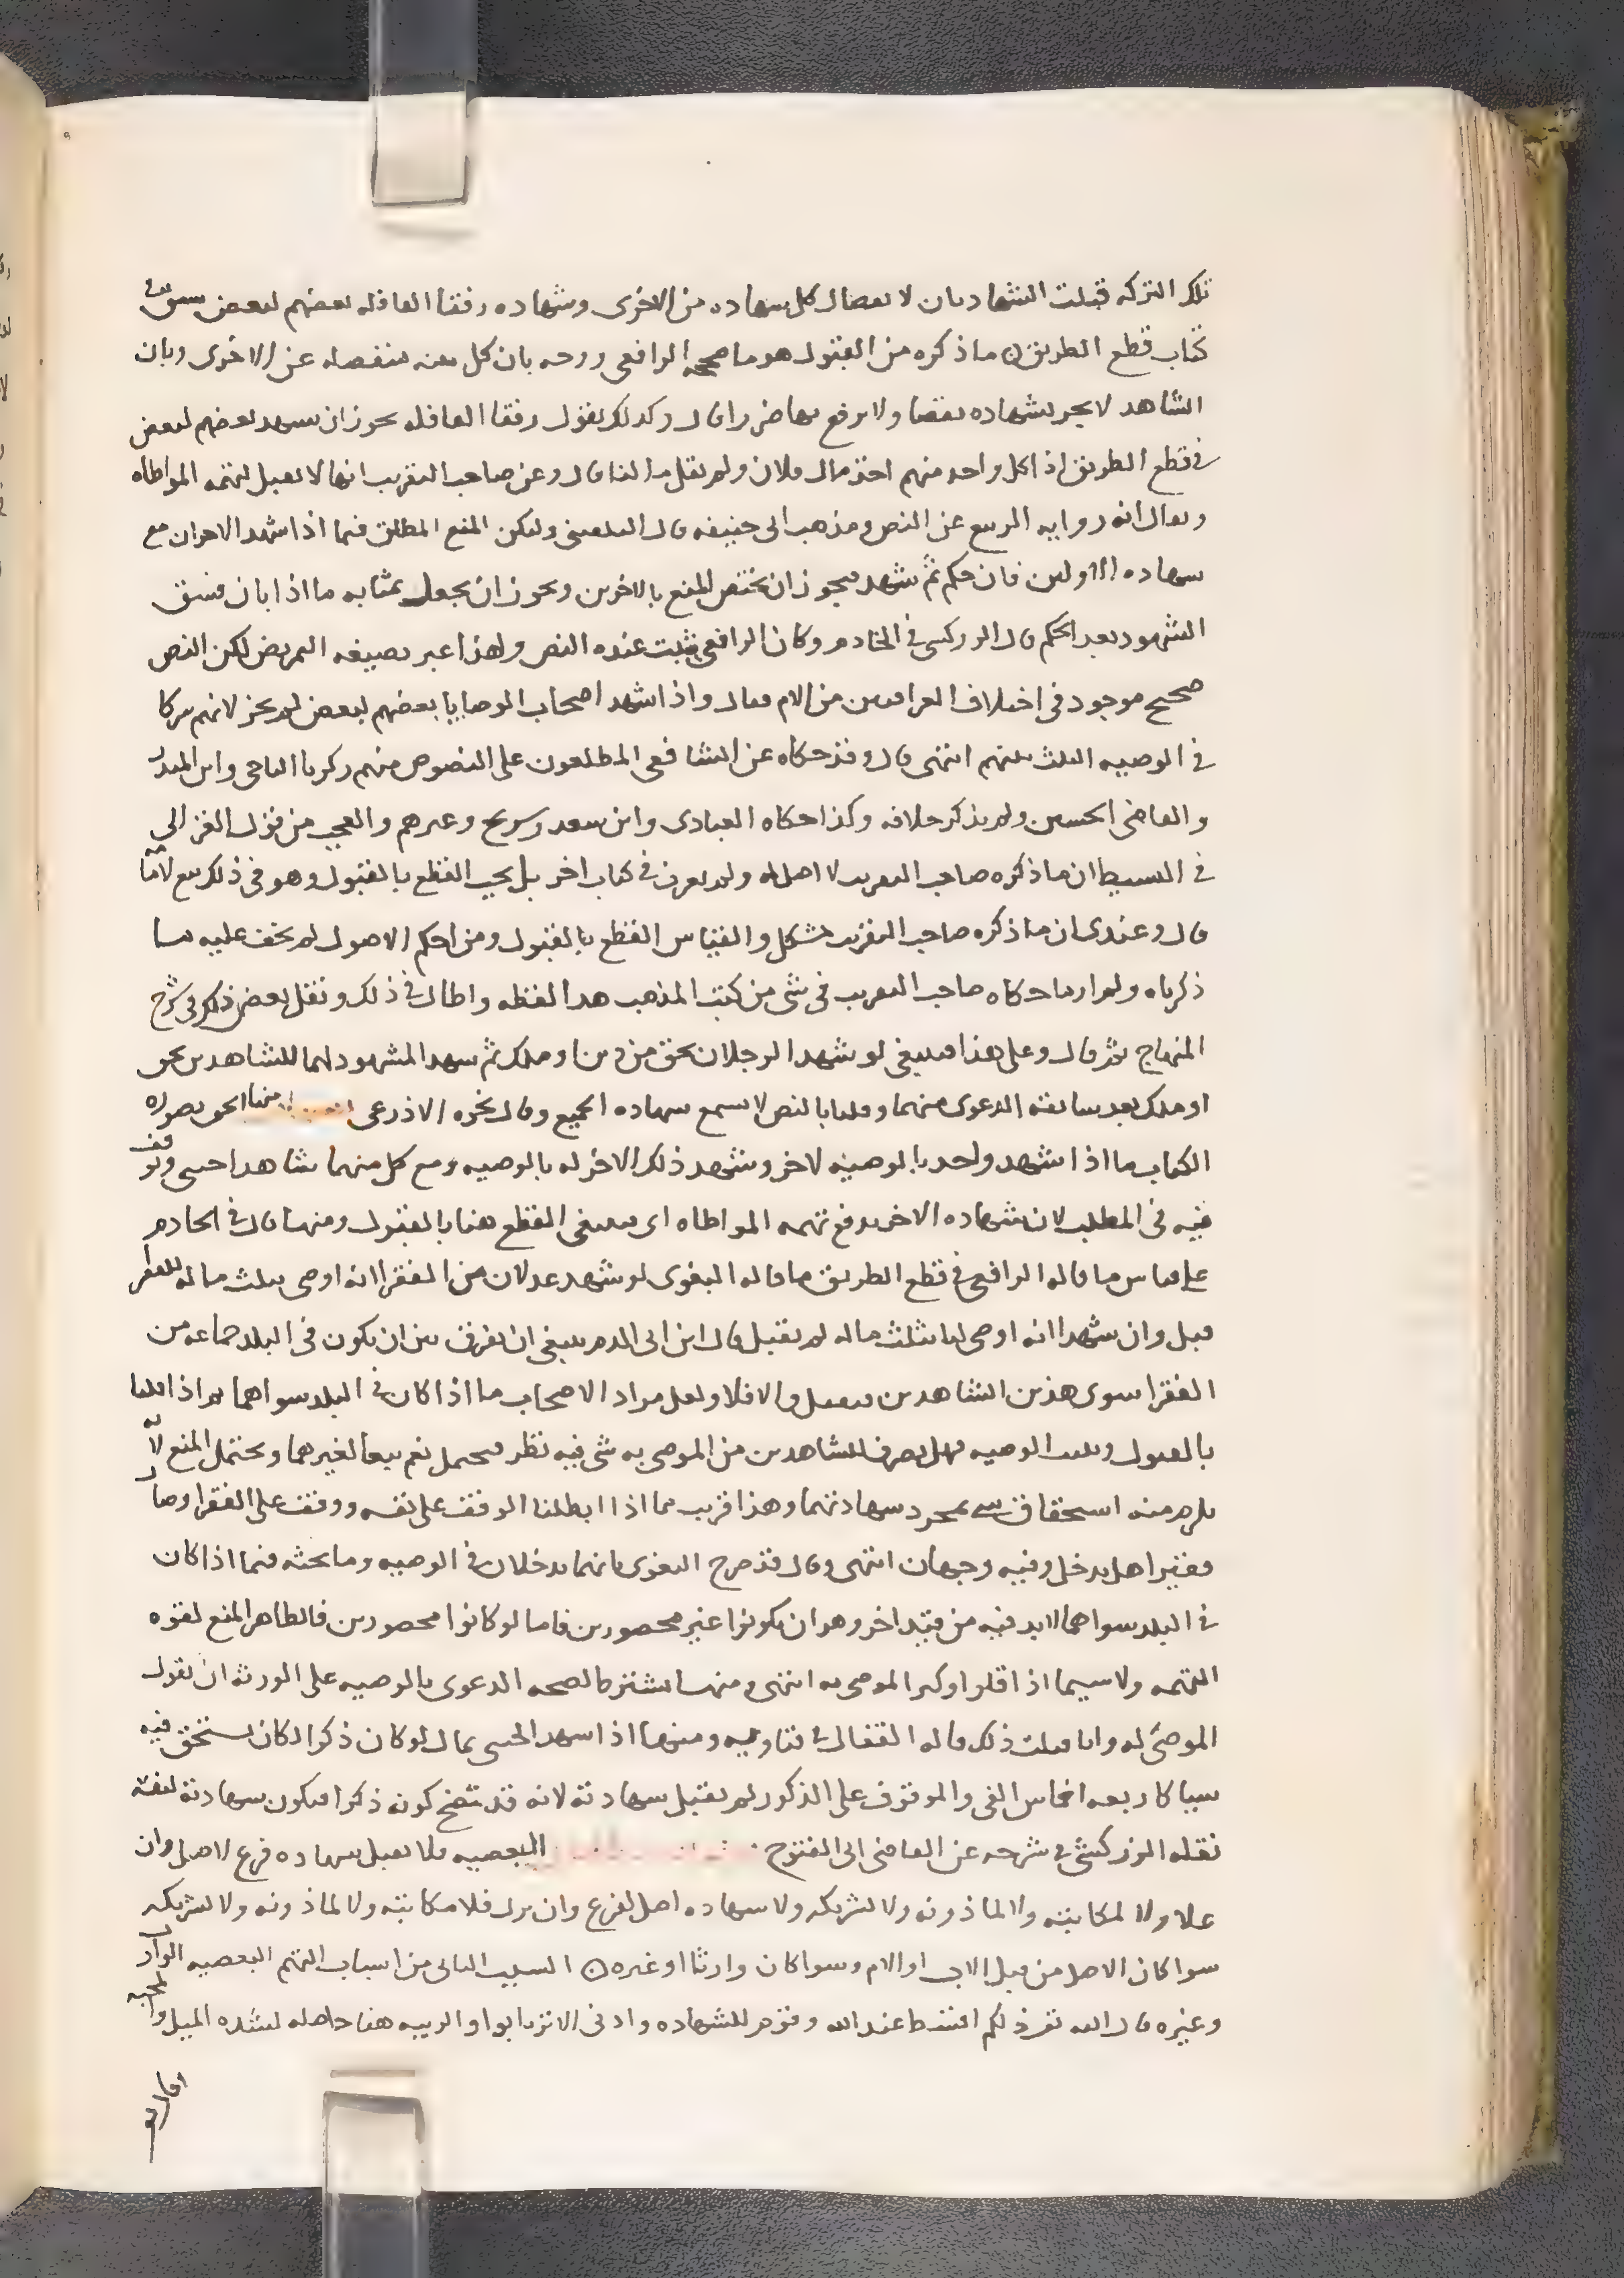 تلك التركه قبلت الشهادتان لانفصال كل شهاده من الاخرى وشهاده رفقا القافله بعضهم لبعض سبق في
كتاب قطع الطريق ما ذكره من القبول هو ما صححه الرافعي ووجه بان كل بينه منفصله عن الاخرى وبان
الشاهد لا يجر بشهادته نفعا ولا يرفع بها ضررا قال وكذلك نقول رفقا القافله يجوز ان يشهد بعضهم لبعض
في قطع الطريق اذا كل واحد منهم اخذ مال فلان ولم يقل مالنا قال وعن صاحب التقريب انها لا تقبل لتهمه المواطاه
ويقال انه روايه الربيع عن النص ومذهب ابي حنيفه قال البلقيني وليكن المنع المطلق فيما اذا شهد الاخران مع
شهاده الاولين فان حكم ثم شهد فيجوز ان يختص المنع بالاخرين ويجوز ان يجعل بمثابه ما اذا بان فسق
الشهود بعد الحكم قال الزركشي في الخادم وكان الرافعي يثبت عنده النص ولهذا عبر بصيغه التمريض لكن النص
صحيح موجود في اختلاف العراقيين من الام فقال واذا شهد اصحاب الوصايا بعضهم لبعض لم يجز لانهم شركا
في الوصيه الثلث بينهم انتهى قال وقد حكاه عن الشافعي المطلعون على النصوص منهم زكريا الساجي وابن المنذر
والقاضي الحسين ولم يذكر خلافه وكذا حكاه العبادي وابن سعد وسريج وغيرهم والعجب من قول الغزالي
في البسيط ان ما ذكره صاحب التقريب لا اصل له ولم يعرف في كتاب اخر بل يجب القطع بالقبول وهو في ذلك تبع لامامه
قال وعندي ان ما ذكره صاحب التقريب مشكل والقياس القطع بالقبول ومن احكم الاصول لم يخف عليه ما
ذكرناه ولم ار ما حكاه صاحب التقريب في شي من كتب المذهب هذا لفظه واطال في ذلك ونقل بعض ذلك في شرح
المنهاج ثم قال وعلى هذا فينبغي لو شهد الرجلان بحق من دين او ملك ثم شهد المشهود لهما للشاهدين بحق
او ملك بعد سابقه الدعوى منهما وقلنا بالنص لا تسمع شهاده الجميع وقال نحوه الاذرعي منها الحق بصوره
الكتاب ما اذا شهد واحد بالوصيه لاخر وشهد ذلك الاخر له بالوصيه ومع كل منهما شاهد اجنبي وتوقف
فيه في المطلب لان شهاده الاخر يدفع تهمه المواطاه اي فينبغي القطع هنا بالقبول ومنها قال في الخادم
على قياس ما قاله الرافعي في قطع الطريق ما قاله البغوي لو شهد عدلان من الفقرا انه اوصى بثلث ماله للفقرا
قبل وان شهدا انه اوصى لنا بثلث ماله لم يقبل قال ابن ابي الدم ينبغي ان يفرق بين ان يكون في البلد جماعه من
الفقرا سوى هذين الشاهدين فيقبل والا فلا ولعل مراد الاصحاب ما اذا كان في البلد سواهما ثم اذا قلنا
بالقبول وثبت الوصيه فهل يصرف للشاهدين من الموصى به شي فيه نظر فيحتمل نعم تبعا لغيرهما ويحتمل المنع لانه
يلزم منه استحقاق شي بمجرد شهادتهما وهذا قريب مما اذا ابطلنا الوقف على نفسه ووقف على الفقرا وصار
فقيرا هل يدخل وفيه وجهان انتهى وقال قد صرح البغوي بانهما يدخلان في الوصيه وما بحثه فيما اذا كان
في البلد سواهما لا بد فيه من قيد اخر وهو ان يكونوا غير محصورين فاما لو كانوا محصورين فالظاهر المنع لقوه
التهمه ولا سيما اذا قلوا وكبر الموصى به انتهى ومنها يشترط لصحه الدعوى بالوصيه على الورثه ان يقول
الموصى له وانا قبلت ذلك قاله القفال في فتاويه ومنها اذا شهد الخنثى بمال لو كان ذكرا لكان يستحق فيه
شيا كاربعه اخماس الفي والموقوف على الذكور لم تقبل شهادته لانه قد يتضح كونه ذكرا فيكون شهادته لنفسه
نقله الزركشي في شرحه عن القاضي ابي الفتوح البعضيه فلا تقبل شهاده فرع لاصل وان
علا ولا لمكاتبه ولا لماذونه ولا لشريكه ولا شهاده اصل لفرع وان نزل فلا مكاتبه ولا لماذونه ولا لشريكه
سوا كان الاصل من قبل الاب او الام وسوا كان وارثا او غيره السبب الثاني من اسباب التهم البعضيه الوارد
وغيره قال الله تع ذلكم اقسط عند الله واقوم للشهاده وادنى الا ترتابوا والريبه هنا حاصله لشده الميل والمحبه
وقال تع